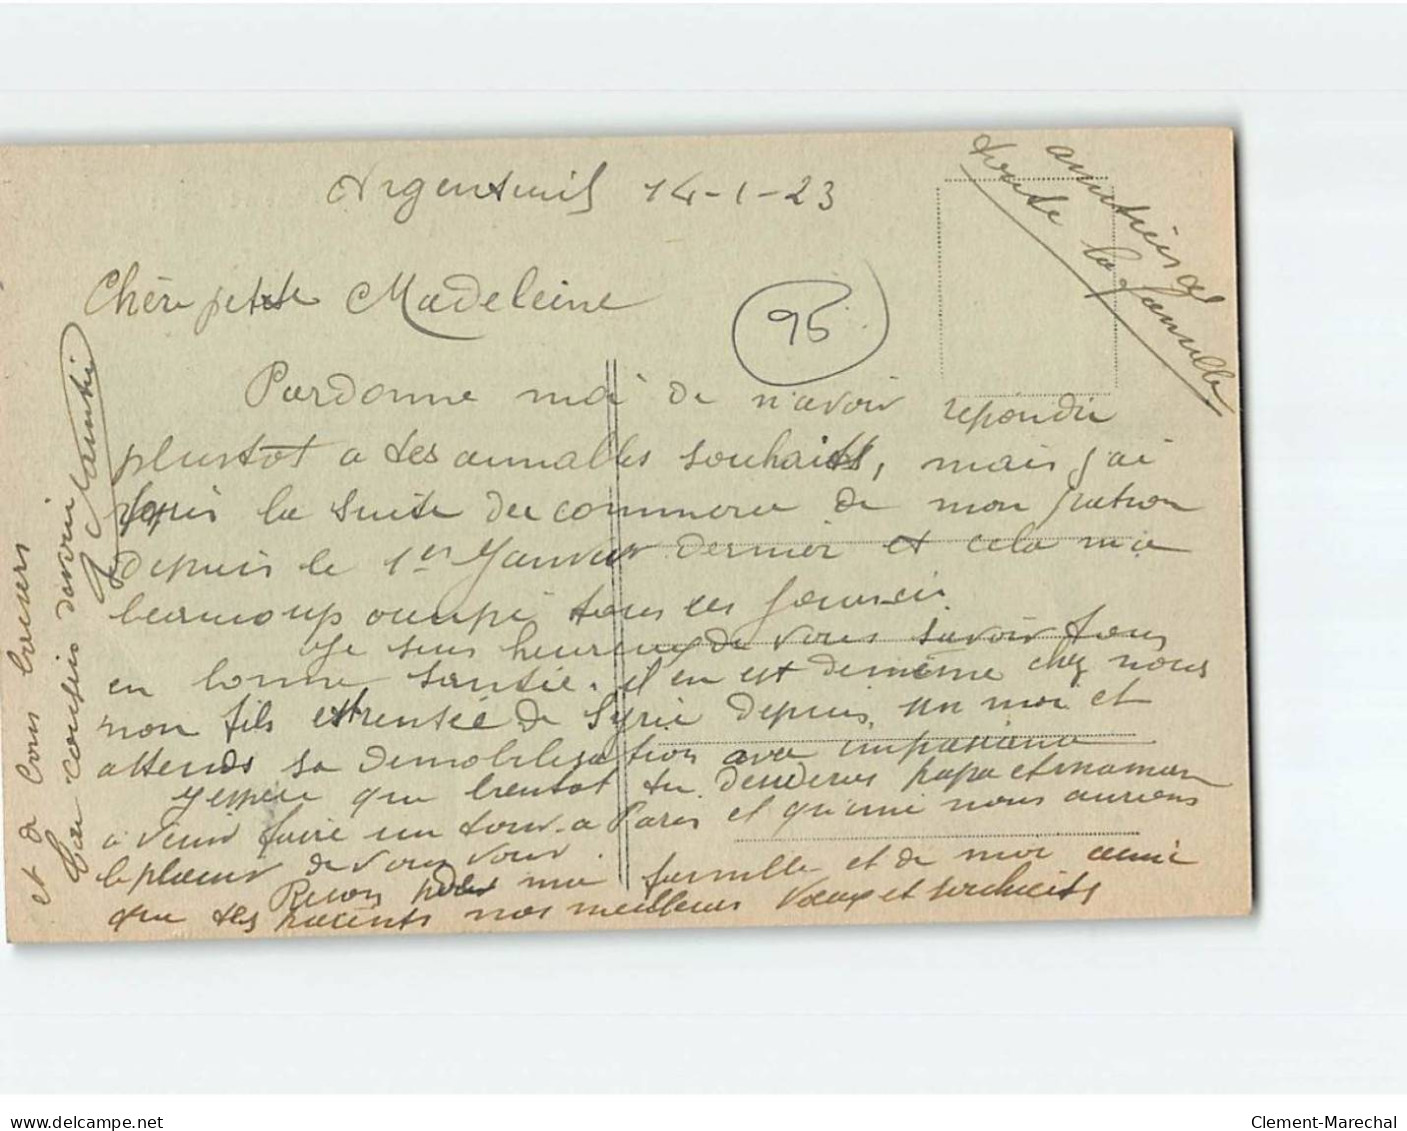 Argenteuil 14-1-23
amitiés de
toute la famille
Chère petite Madeleine
95
Pardonne moi de n'avoir repondu
plustot a tes aimables souhaits, mais j'ai
repris la suite du commerce de mon patron
depuis le 1er Janvier dernier et cela m'a
beaucoup occupé tous ces jours ci.
Je suis heureux de vous savoir tous
en bonne santée. il en est de même chez nous
mon fils est rentée de Syrie depuis un moi et
attends sa demobilisation avec impatiance
J'espere que bientot tu decideras papa et maman
a venir faire un tour a Paris et qu'ainsi nous aurions
le plaisir de vous voir.
Recois de ma famille et de moi ainsi
que tes parents nos meilleurs Vœux et souhaits
et de bons baisers
cousins